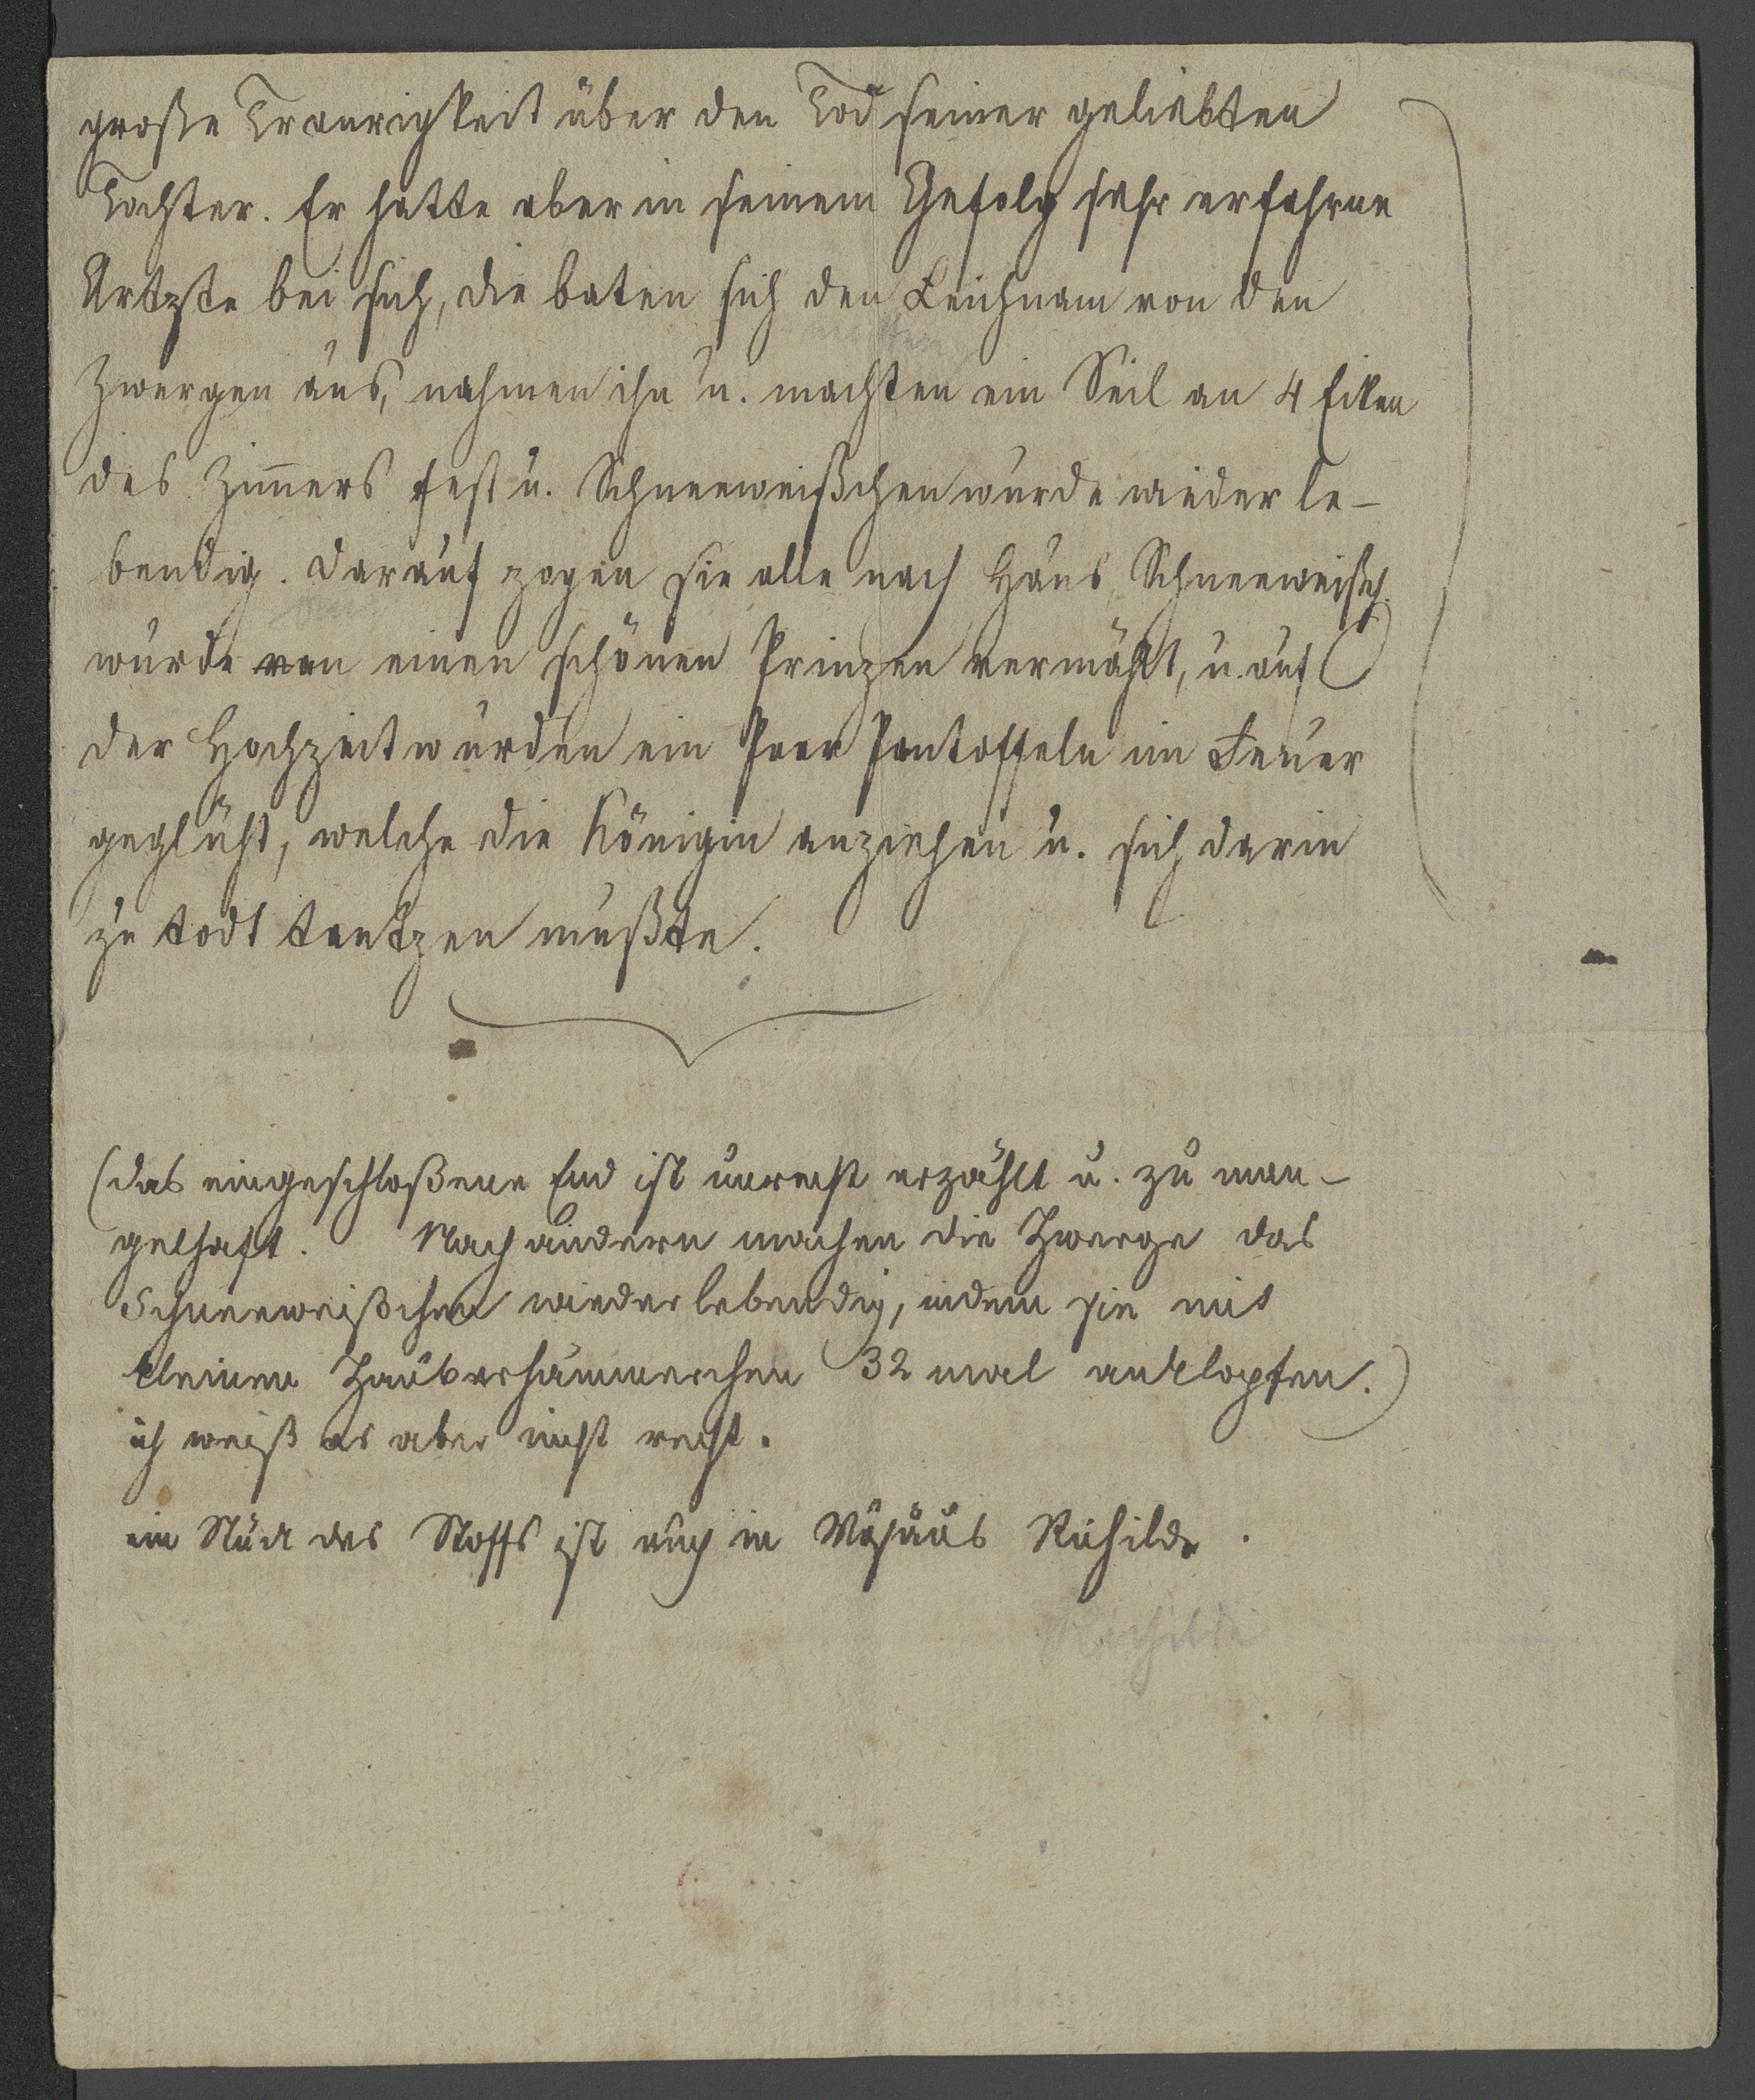 große Traurigkeit über den Tod seiner geliebten
Tochter. Er hatte aber in seinem Gefolg sehr erfahrne
Artzte bei sich, die baten sich den Leichnam von den
Zwergen aus, nahmen ihn u. machten ein Seil an 4 Eken
des Zim̄ers fest u. Schneeweißchen wurde wieder le-
bendig. Darauf zogen sie alle nach Haus, Schneeweißch.
wurde von einen schönen Prinzen vermählt, u. auf
der Hochzeit wurden ein Paar Pantoffeln im Feuer
geglüht, welche die Königin anziehen u. sich darin
zu todt tantzen mußte.
(das eingeschloßene End ist unrecht erzählt u. zu man-
gelhaft. Nach andern machen die Zwerge das
Schneeweißchen wieder lebendig, indem sie mit
kleinen Zauberhämmerchen 32 mal anklopfen.)
ich weiß es aber nicht recht.
ein Stück des Stoffs ist auch in Musäus Richilde.
Richilde